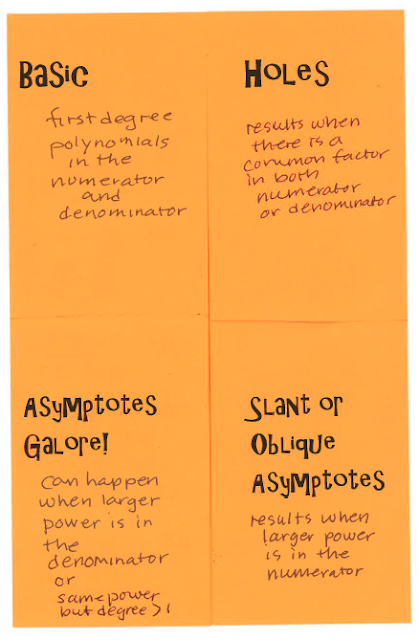 Basic
first degree
polynomials
in the
numerator
and
denominator
Holes
results when
there is a
common factor
in both
numerator
or denominator
Asymptotes
Galore!
can happen
when larger
power is in
the
denominator
or
same power
but degree > 1
Slant or
Oblique
Asymptotes
results when
larger power
is in the
numerator